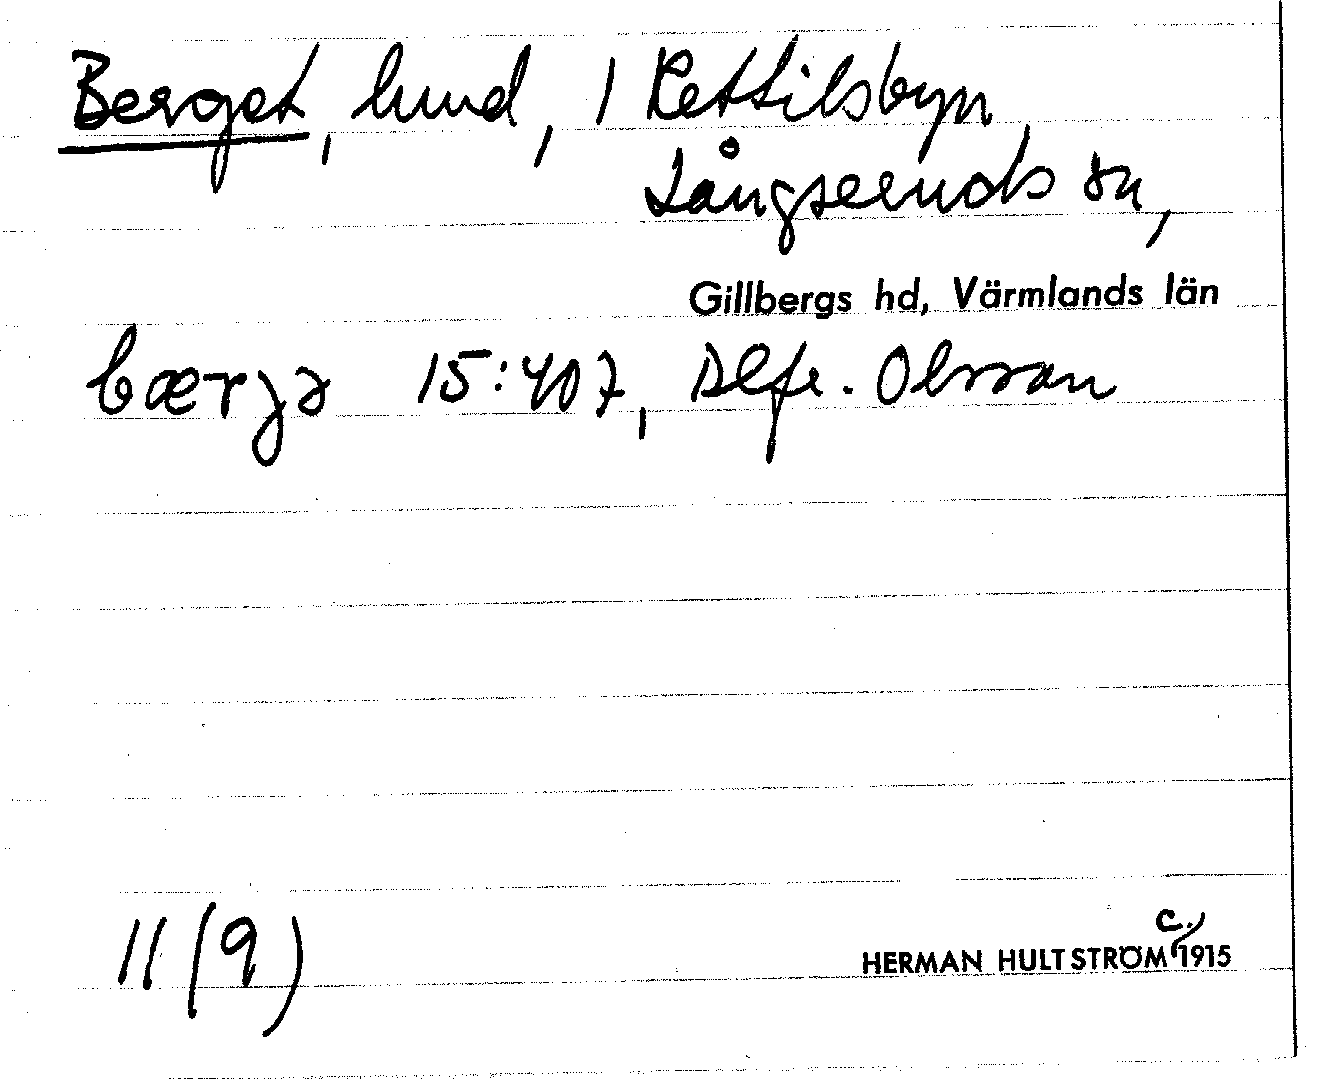 Berget, lund, i Kettilsbyn,
Långseruds sn,
Gillbergs hd, Värmlands län
bærjə 15:407, Alfr. Olsson
11 (9)
HERMAN HULTSTRÖM c. 1915